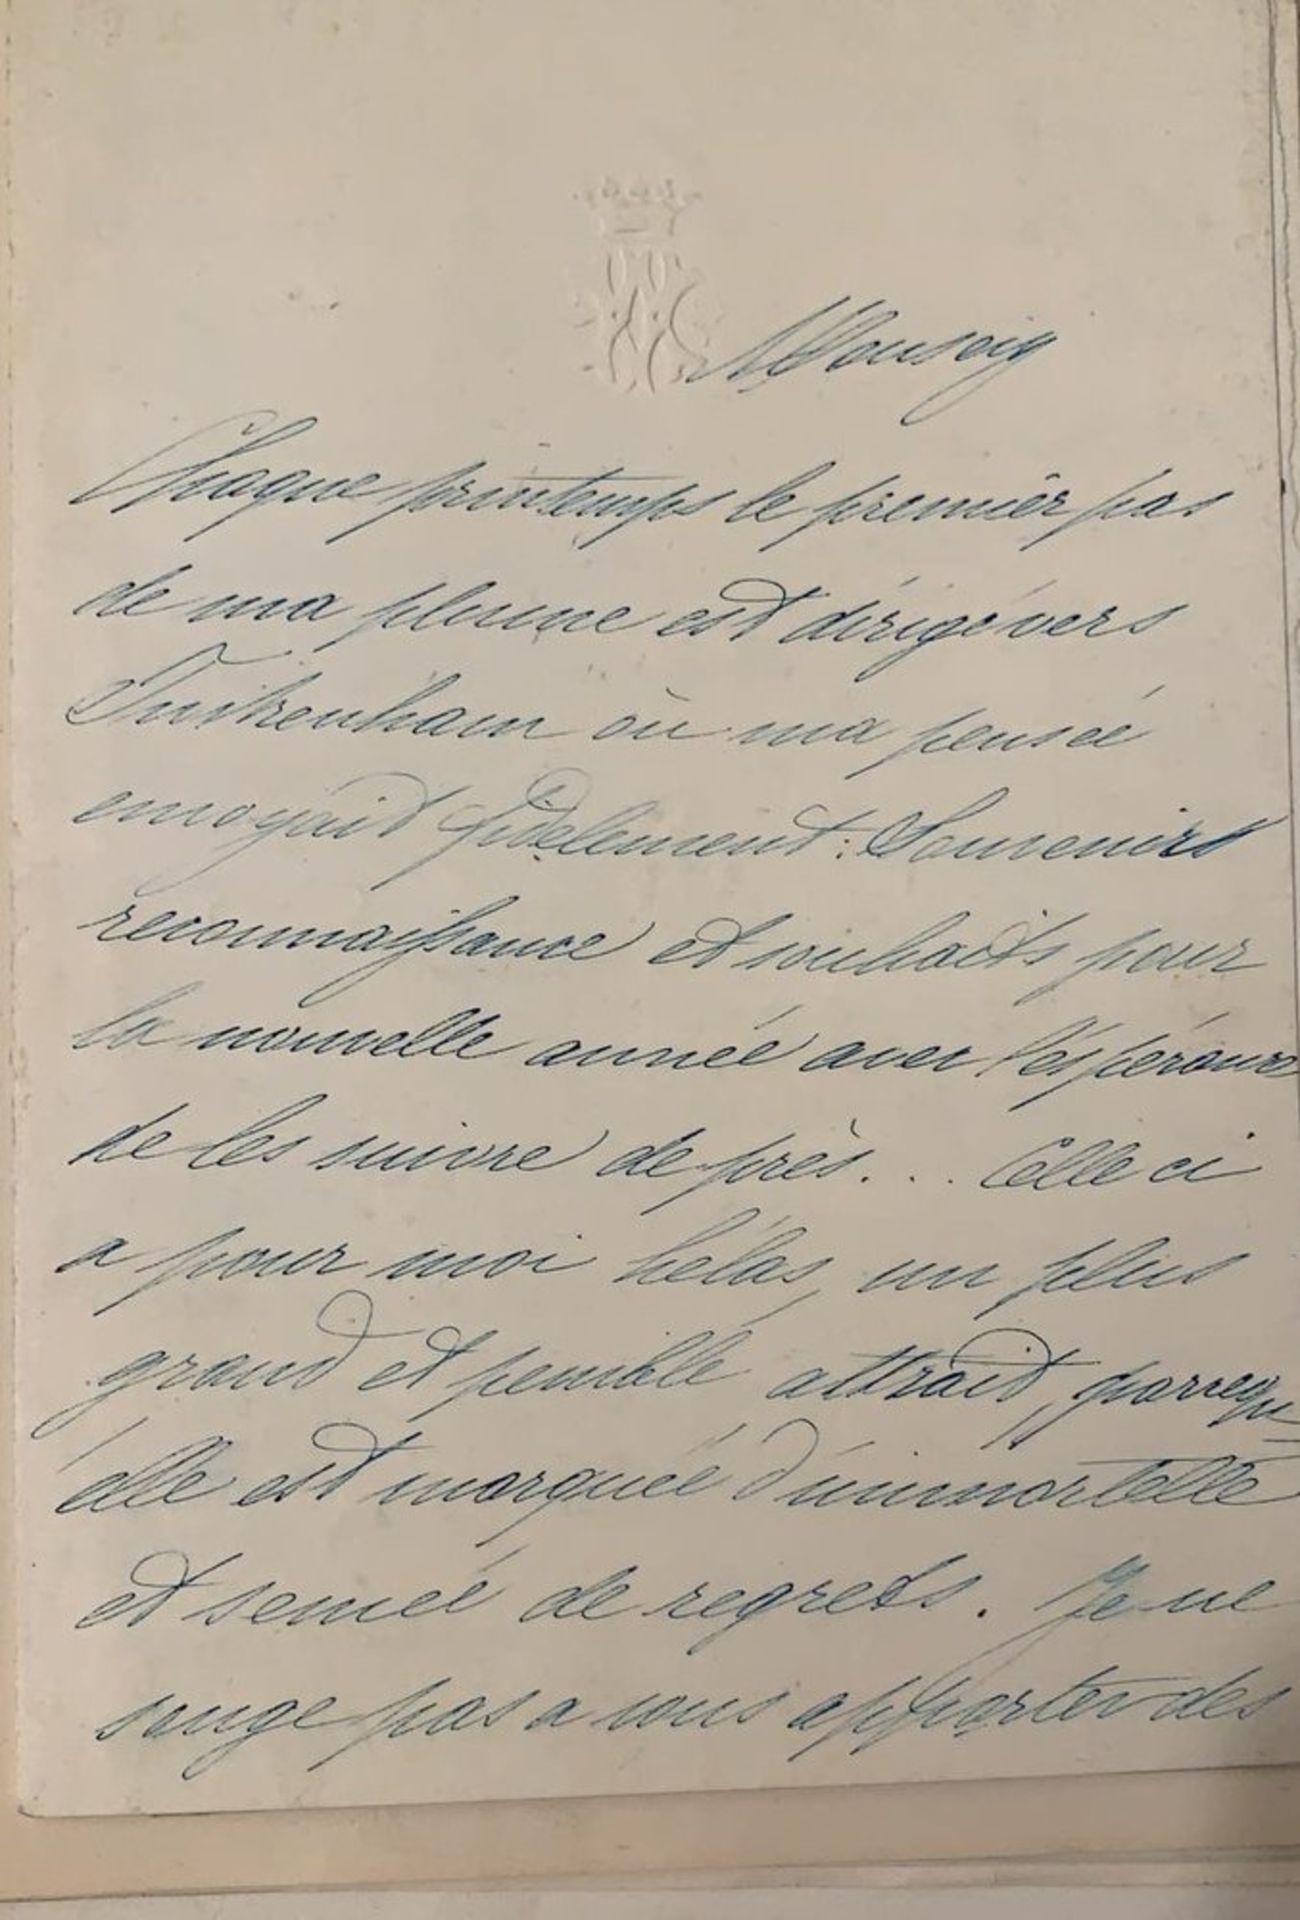 Monseig
Chaque printemps le premier pas
de ma plume est dirigé vers
Twikenham où ma pensée
envoyait fidelement: Souvenirs
reconnaissance et souhaits pour
la nouvelle année avec l'espérance
de les suivre de près... Celle ci
a pour moi hélas, un plus
grand et penible attrait, parcequ'
elle est marquée d'immortelle
et semée de regrets. Je ne
songe pas a vous apporter des